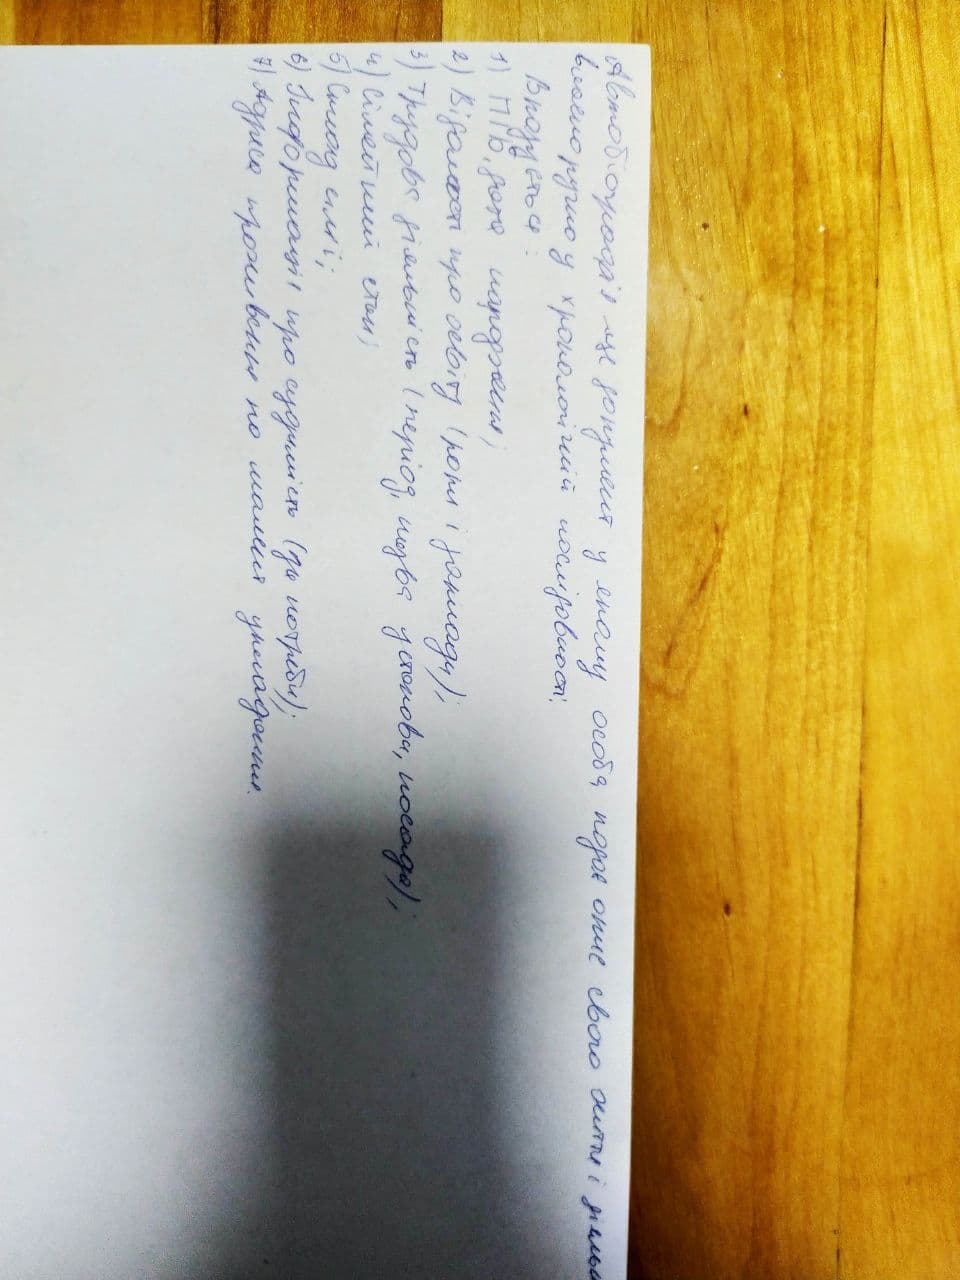 Автобіографія - це документ у якому особа подає опис свого життя і
власноручно у хронологічній послідовності.
Вказується:
1) ПІБ, дата народження;
2) Відомості про освіту (роки і заклади);
3) Трудова діяльність (період, назва установи, посада);
4) Сімейний стан;
5) Склад сім'ї;
6) Інформація про судимість (за потреби);
7) Адреса проживання на момент укладання.